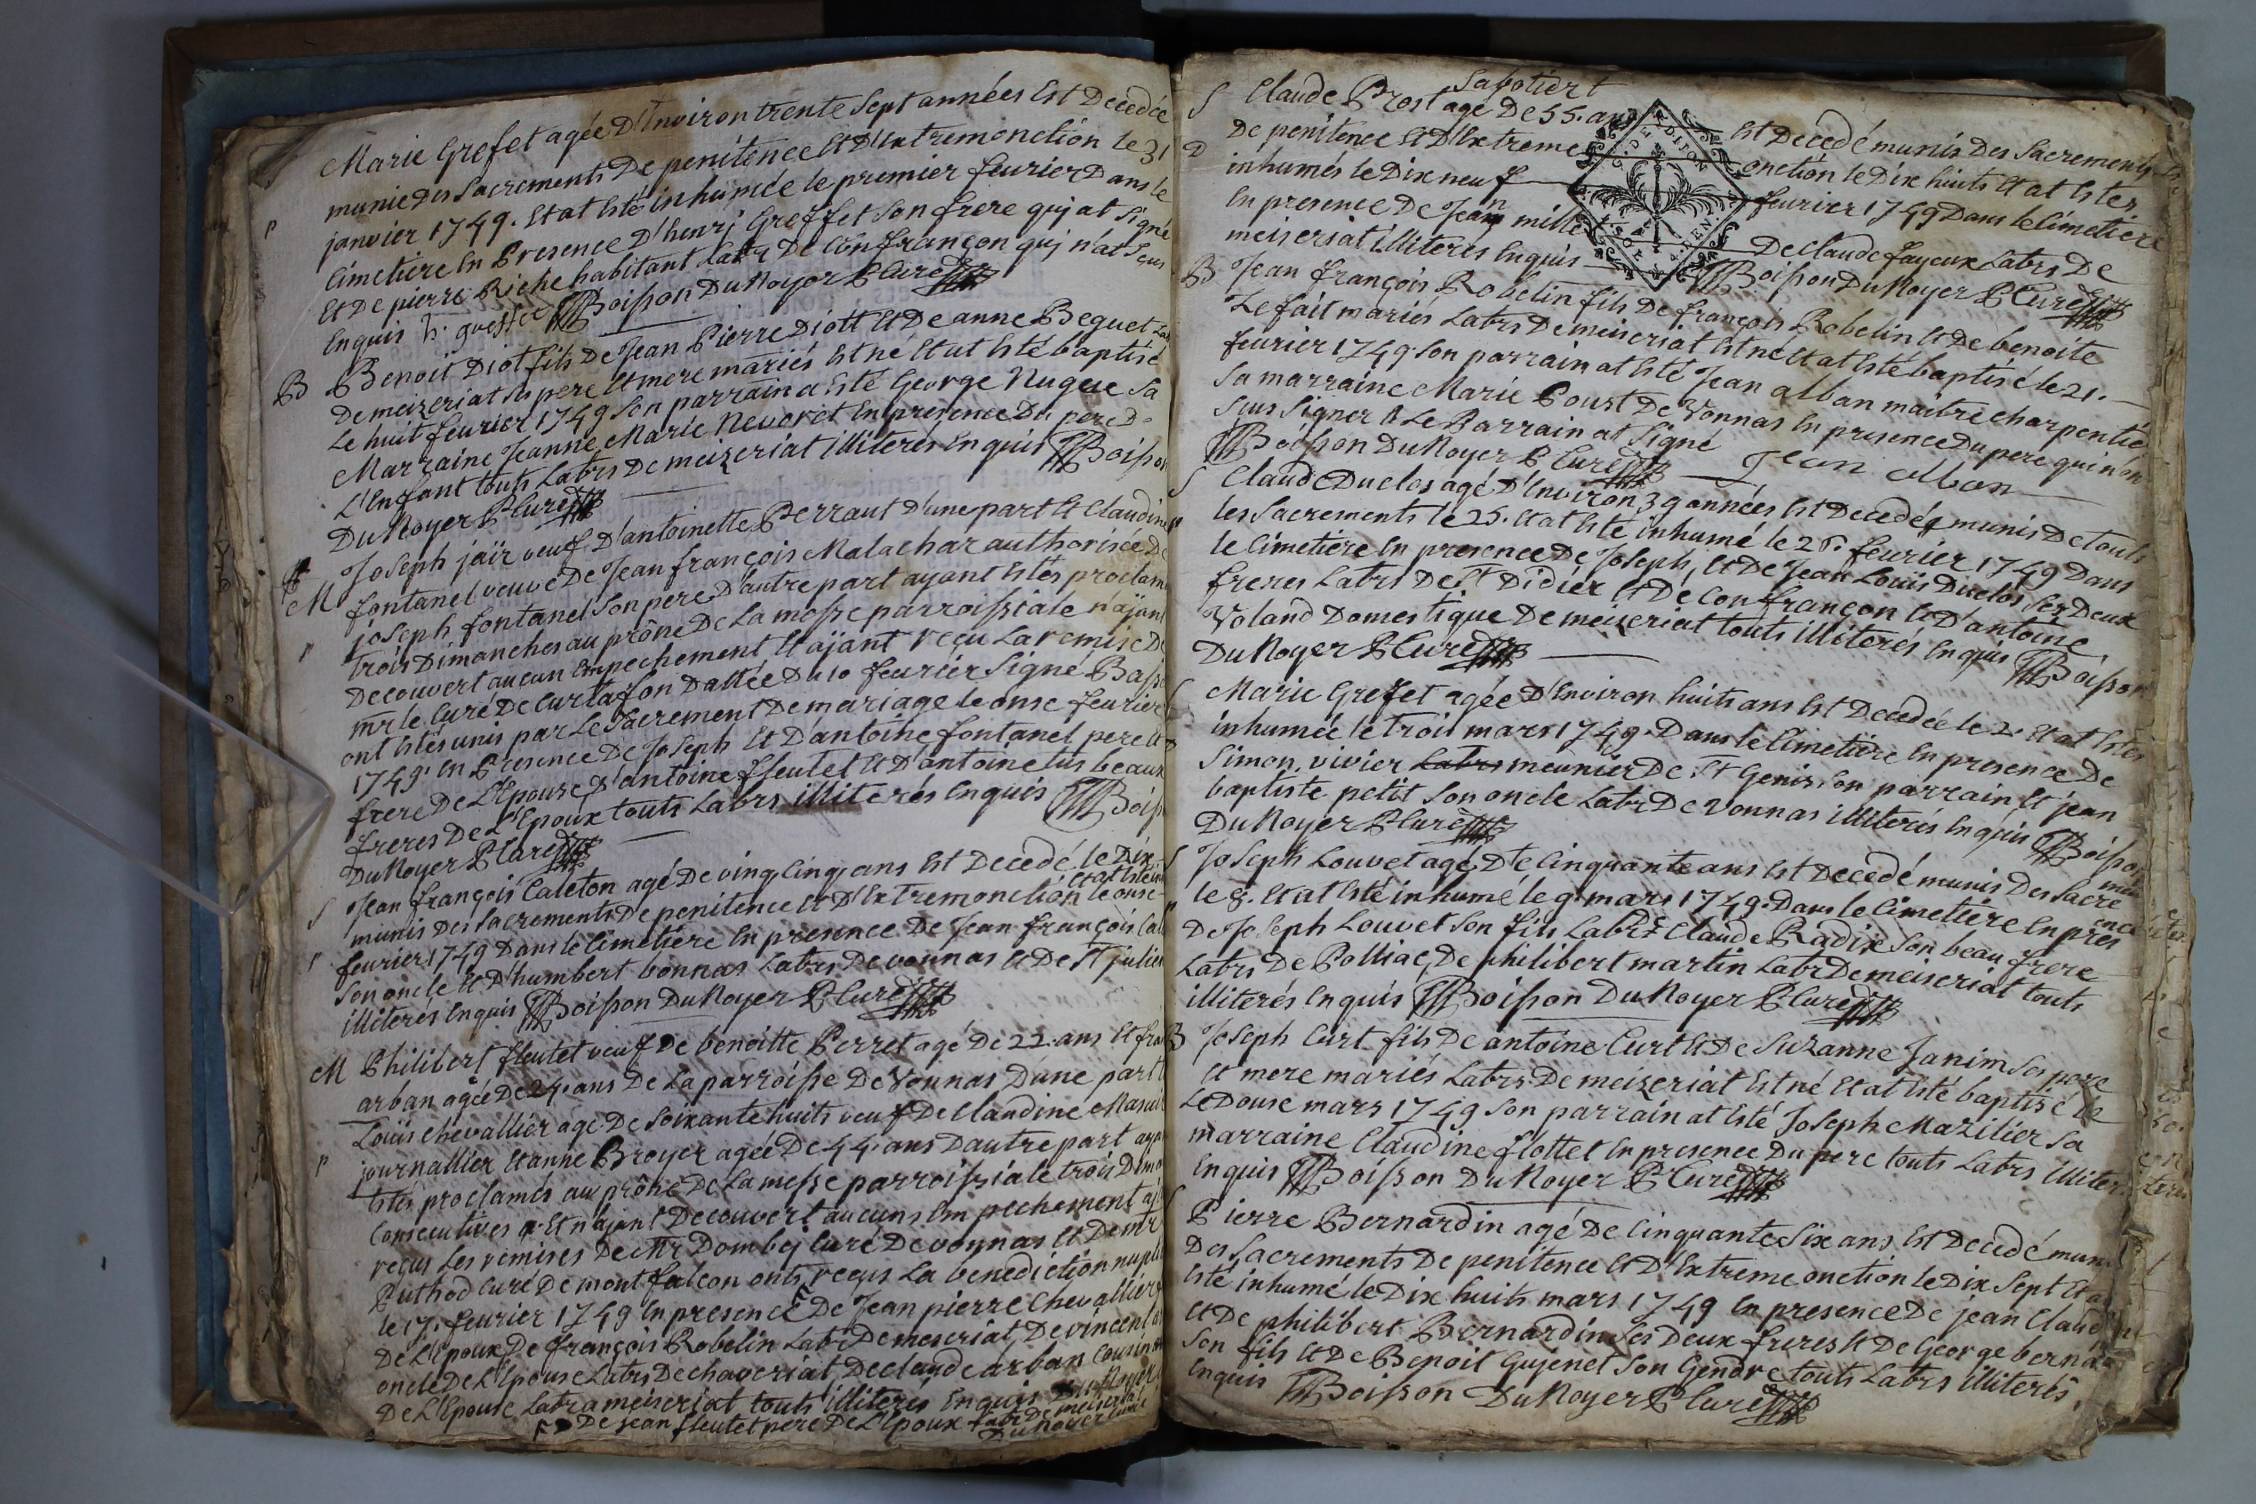 Marie Grefet agée D'Environ trente Sept années Est Decedée
munie des Sacrements De penitence Et D'Extremonction le 31
janvier 1749. Et at Esté inhumée le premier feurier Dans le
Cimetiere En Presence D'henrj Greffet Son frere quj at Signé
Et De pierre Riche habitant Labr De Confrançon quj n'at Sçus
Enquis h. greffet Boisson Du Noyer P Curé
B Benoit Diot fils De Jean Pierre Diott Et De anne Beguet Lab
De meizeriat Ses pere Et mere mariés Est né Et at Esté baptisé
Le huit feurier 1749 Son parrain a Esté George Nugue Sa
Marraine Jeanne Marie Nevoret En presence Du pere D
L'Enfant touts Labrs De meizeriat illiterés Enquis Boisson
Du Noyer P Curé
M Joseph jaïr veuf D'antoinette Perraut D'une part Et Claudine
fontanel veuve De Jean françois Malachar authorisée De
joseph fontanel Son pere D'autre part ayant Estés proclam
trois Dimanches au prône De La messe parroissiale n'ajant
Decouvert aucun Empechement Et ajant reçu La remise De
mr le Curé De Curtaffon Dattée Du 10 feurier Signé
ont Estés unis par Le Sacrement De mariage le onse feurier
1749. En Presence De Joseph Et D'antoine fontanel pere Et
frere De L'Epouse D'antoine fleutet Et D'antoine beaux
freres De L'Epoux touts Labrs illiterés Enquis Boiss
Du Noyer P Curé
S Jean françois Caleton agé De vingt Cinq ans Est Decedé le Dix
munis des Sacrements De penitence Et D'Extremonction Et at Esté le onse
feurier 1749 Dans le Cimetiere En presence De Jean françois Cal
Son oncle Et D'humbert bonnas Labrs De vonnas Et De St julien
illiterés Enquis Boisson Du Noyer P Curé
M Philibert fleutet veuf De benoitte Perret agé De 22 ans Et fra
arban agée De 24 ans De La parroisse De Vonnas Dune part
Loüis Chevallier age De Soixante huits veuf De Claudine
journallier Et anne Broyer agée De 44. ans Dautre part ayant
Estés proclamés aux prône De La messe parroissiale trois Dim
Consecutives Et n'ajant Decouvert aucuns Empechements aj
reçus Les remises De Mr Dombej Curé De vonnas Et De mr
Puthod Curé De montfalcon onts reçus La benediction nuptial
le 17. feurier 1749 En presence De Jean pierre Chevallier
De L'Epoux De françois Robelin Labr De meseriat, De vincent
oncle De L'Epouse Labrs De chaveriat, De claude arban Cousin
De L'Epouse Labr a meiseriat touts illiterés Enquis
De jean fleutet pere De L'Epoux Labr De meiseriat
Du Noyer Curé
Sabotiert
S Claude Prost agé De 55. ans Est Decedé munis Des Sacrements
De penitence Et D'Extreme onction le Dix huits Et at Estez
inhumés le Dix neuf feurier 1749 Dans le Cimetiere
En presence De Jean mille De Claude fayeux Labrs De
meiseriat illiterés Enquis Boisson Du Noyer P Curé
G. DE DIJON
B Jean françois Robelin fils De françois Robelin Et De benoite
Le fait mariés Labrs De meiseriat Est né Et at Esté baptisé le 21.
feurier 1749 Son parrain at Esté Jean alban maitre charpentié
Sa marraine Marie Poust De Vonnas En presence Du pere qui n'on
Sçus Signer Le Parrain at Signé Jean alban
Boisson Du Noyer P Curé
S Claude Duclos agé D'Environ 39 années Est Decedé munis De touts
les Sacrements le 25. Et at Esté inhumé le 26. feurier 1749 Dans
le Cimetiere En presence De Joseph, Et De Jean Louis Duclos Ses Deux
freres Labrs De St Didier Et De Confrançon Et D'antoine
Voland Domestique De meizeriat touts illiterés Enquis Boisson
Du Noyer P Curé
Marie Grefet agée D'Environ huits ans Est Decedée le 2. Et at Estés
inhumée le trois mars 1749. Dans le Cimetiere En presence De
Simon vivier Labrs meunier De St Genis Son parrain Et jean
baptiste petit Son oncle Labr De Vonnas illiterés Enquis Boisson
Du Noyer P Curé
Joseph Louvet agé De Cinquante ans Est Decedé munis Des Sacre
ments le 8. Et at Esté inhumé le 9. mars 1749. Dans le Cimetiere En pres
ence De Joseph Louvet Son fils Labr Claude Radix Son beau frere
Labrs De Polliac, De philibert martin Labr De meiseriat touts
illiterés Enquis Boisson Du Noyer P Curé
B Joseph Curt fils De antoine Curt Et De Suzanne Janim Ses pere
Et mere mariés Labrs De meizeriat Est né Et at Esté baptisé le
Le Douse mars 1749 Son parrain at Esté Joseph Mazilier Sa
marraine Claudine flottet En presence Du pere touts Labrs illiter
Enquis Boisson Du Noyer P Curé
S Pierre Bernardin agé De Cinquante Six ans Est Decedé munis
Des Sacrements De penitence Et D'Extreme onction le Dix Sept Et at
Esté inhumé le Dix huits mars 1749 En presence De jean Claude
Et De philibert Bernardin Ses Deux freres Et De George berna
Son fils Et De Benoit Gujenet Son Gendre touts Labrs illiterés.
Enquis Boisson Du Noyer P Curé